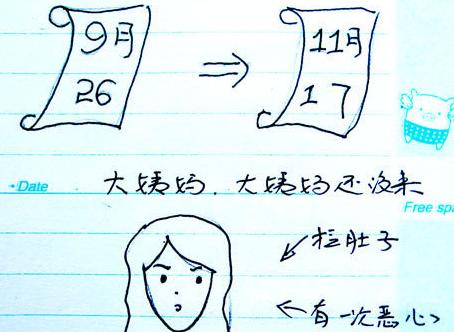 9月 11月
26 17
Date
大姨妈.大姨妈还没来
Free sp
拉肚子
有一次恶心